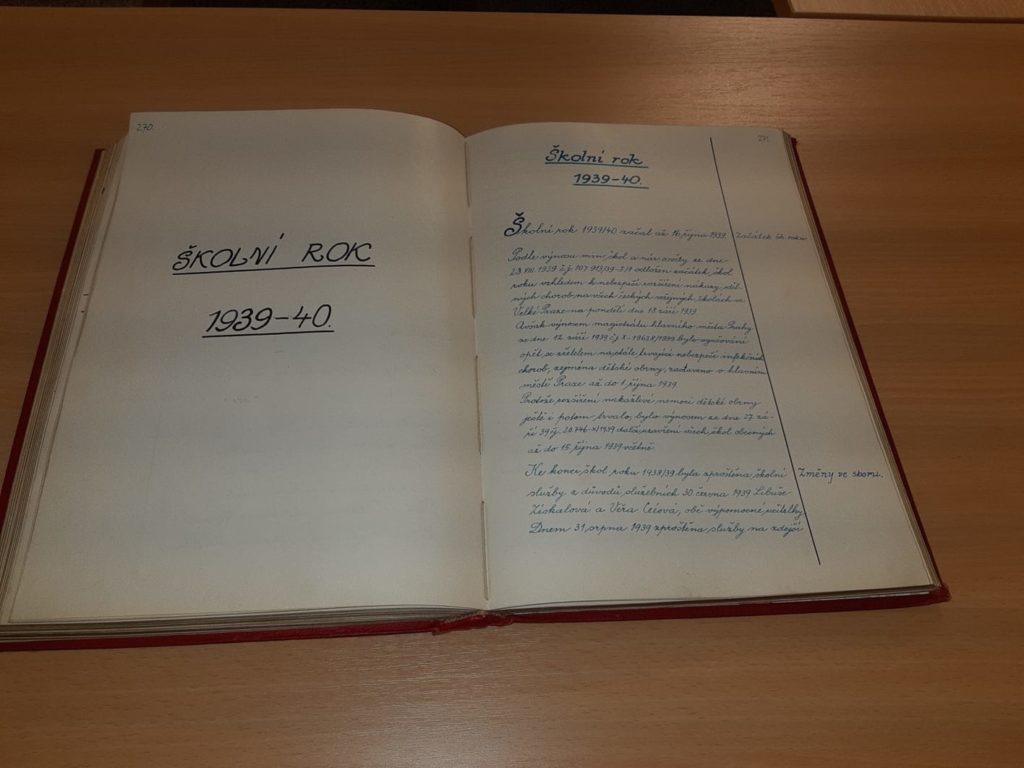 270.
ŠKOLNÍ ROK
1939-40.
271.
Školní rok
1939-40.
Školní rok 1939/40 začal až 16. října 1939.
Začátek šk. roku
Podle výnosu min. škol a nár. osvěty ze dne
23.VIII.1939 č.j. odložen začátek škol.
roku vzhledem k nebezpečí rozšíření nákazy dět-
ských chorob na všech českých veřejných školách ve
Velké Praze na pondělí dne 18. září 1939.
Avšak výnosem magistrátu hlavního města Prahy
ze dne 12. září 1939 bylo vyučování
opět se zřetelem na stále trvající nebezpečí infekčních
chorob, zejména dětské obrny, zastaveno v hlavním
městě Praze až do 1. října 1939.
Protože rozšíření nakažlivé nemoci dětské obrny
ještě i potom trvalo, bylo výnosem ze dne 27. zá-
ří 39 č.j. další uzavření všech škol obecných
až do 15. října 1939 včetně.
Ke konci škol. roku 1938/39 byla zproštěna školní
Změny ve sboru.
služby z důvodů služebních 30. června 1939 Libuše
Získalová a Věra obě výpomocné učitelky.
Dnem 31. srpna 1939 zproštěna služby na zdejší